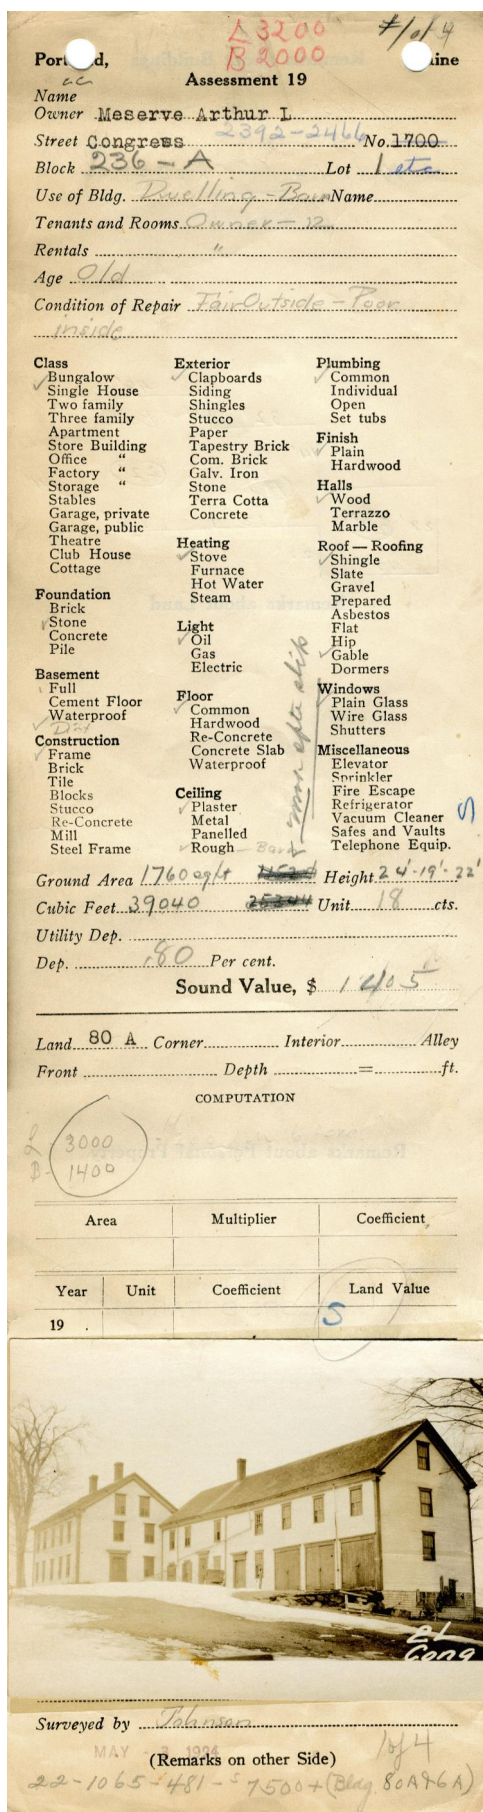 L 3200
B 2000
#1 of 4
Port d, ine
Assessment 19
Name
Owner Meserve Arthur L
Street Congress 2392-2466 No. 1700
Block 236-A Lot 1 etc
Use of Bldg. Dwelling - Barn Name
Tenants and Rooms Owner - 12
Rentals "
Age Old
Condition of Repair Fair Outside - Poor
inside
Class
Bungalow
Single House
Two family
Three family
Apartment
Store Building
Office "
Factory "
Storage "
Stables
Garage, private
Garage, public
Theatre
Club House
Cottage
Foundation
Brick
Stone
Concrete
Pile
Basement
Full
Cement Floor
Waterproof
Dirt
Construction
Frame
Brick
Tile
Blocks
Stucco
Re-Concrete
Mill
Steel Frame
Exterior
Clapboards
Siding
Shingles
Stucco
Paper
Tapestry Brick
Com. Brick
Galv. Iron
Stone
Terra Cotta
Concrete
Heating
Stove
Furnace
Hot Water
Steam
Light
Oil
Gas
Electric
Floor
Common
Hardwood
Re-Concrete
Concrete Slab
Waterproof
Ceiling
Plaster
Metal
Panelled
Rough - Barn
Plumbing
Common
Individual
Open
Set tubs
Finish
Plain
Hardwood
Halls
Wood
Terrazzo
Marble
Roof — Roofing
Shingle
Slate
Gravel
Prepared
Asbestos
Flat
Hip
Gable
Dormers
Windows
Plain Glass
Wire Glass
Shutters
Miscellaneous
Elevator
Sprinkler
Fire Escape
Refrigerator
Vacuum Cleaner
Safes and Vaults
Telephone Equip.
S
Ground Area 1760 sq ft Height 24'-19'-22'
Cubic Feet 39040 25344 Unit 18 cts.
Utility Dep.
Dep. .80 Per cent.
Sound Value, $ 1405
Land 80 A Corner Interior Alley
Front Depth = ft.
COMPUTATION
L - 3000
B - 1400
Area Multiplier Coefficient
Year Unit Coefficient Land Value
19 . S
21
Cong
Surveyed by Johnson
MAY 3 1924
1 of 4
(Remarks on other Side)
22-1065-481-S 7500+(Bldg. 80A96A)